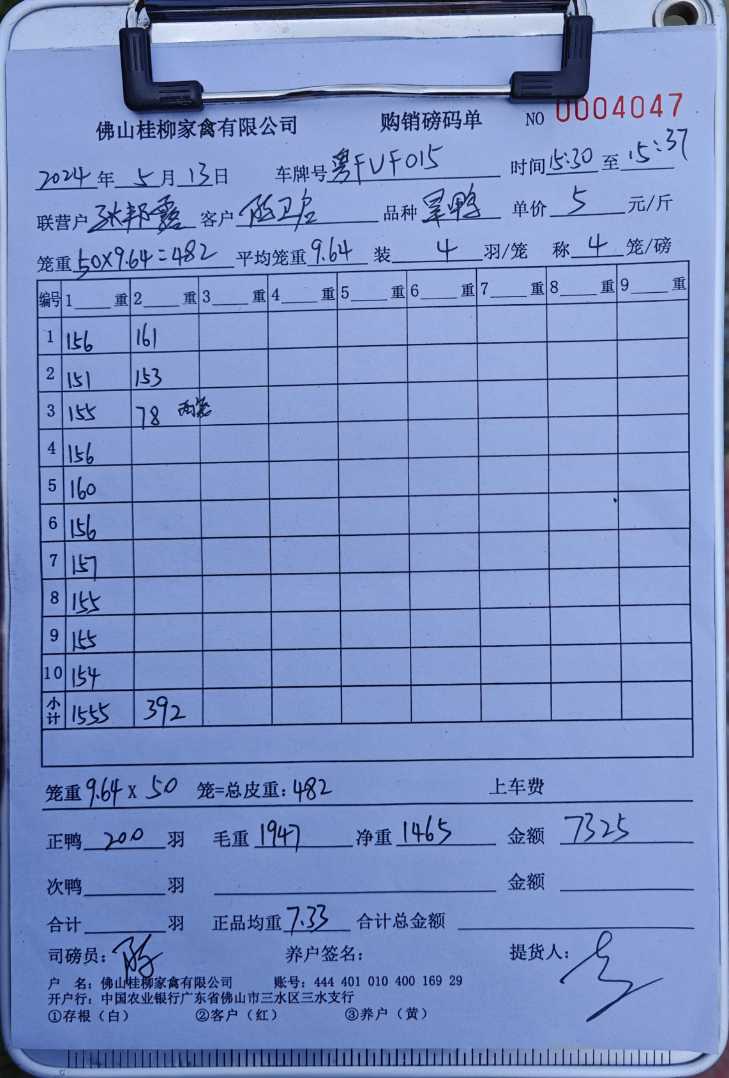 佛山桂柳家禽有限公司 购销磅码单 NO 0004047
2024年5月13日 车牌号粤FVF015 时间15:30至15:37
联营户张邦露 客户 品种旱鸭 单价5元/斤
笼重50×9.64=482 平均笼重9.64 装4羽/笼 称4笼/磅
编号 1重 2重 3重 4重 5重 6重 7重 8重 9重
1 156 161
2 151 153
3 155 78 两笼
4 156
5 160
6 156
7 157
8 155
9 155
10 154
小计 1555 392
笼重9.64×50笼=总皮重:482 上车费
正鸭200羽 毛重1947 净重1465 金额7325
次鸭羽 金额
合计羽 正品均重7.33 合计总金额
司磅员: 养户签名: 提货人:
户 名:佛山桂柳家禽有限公司 账号:444 401 010 400 169 29
开户行:中国农业银行广东省佛山市三水区三水支行
①存根(白) ②客户(红) ③养户(黄)